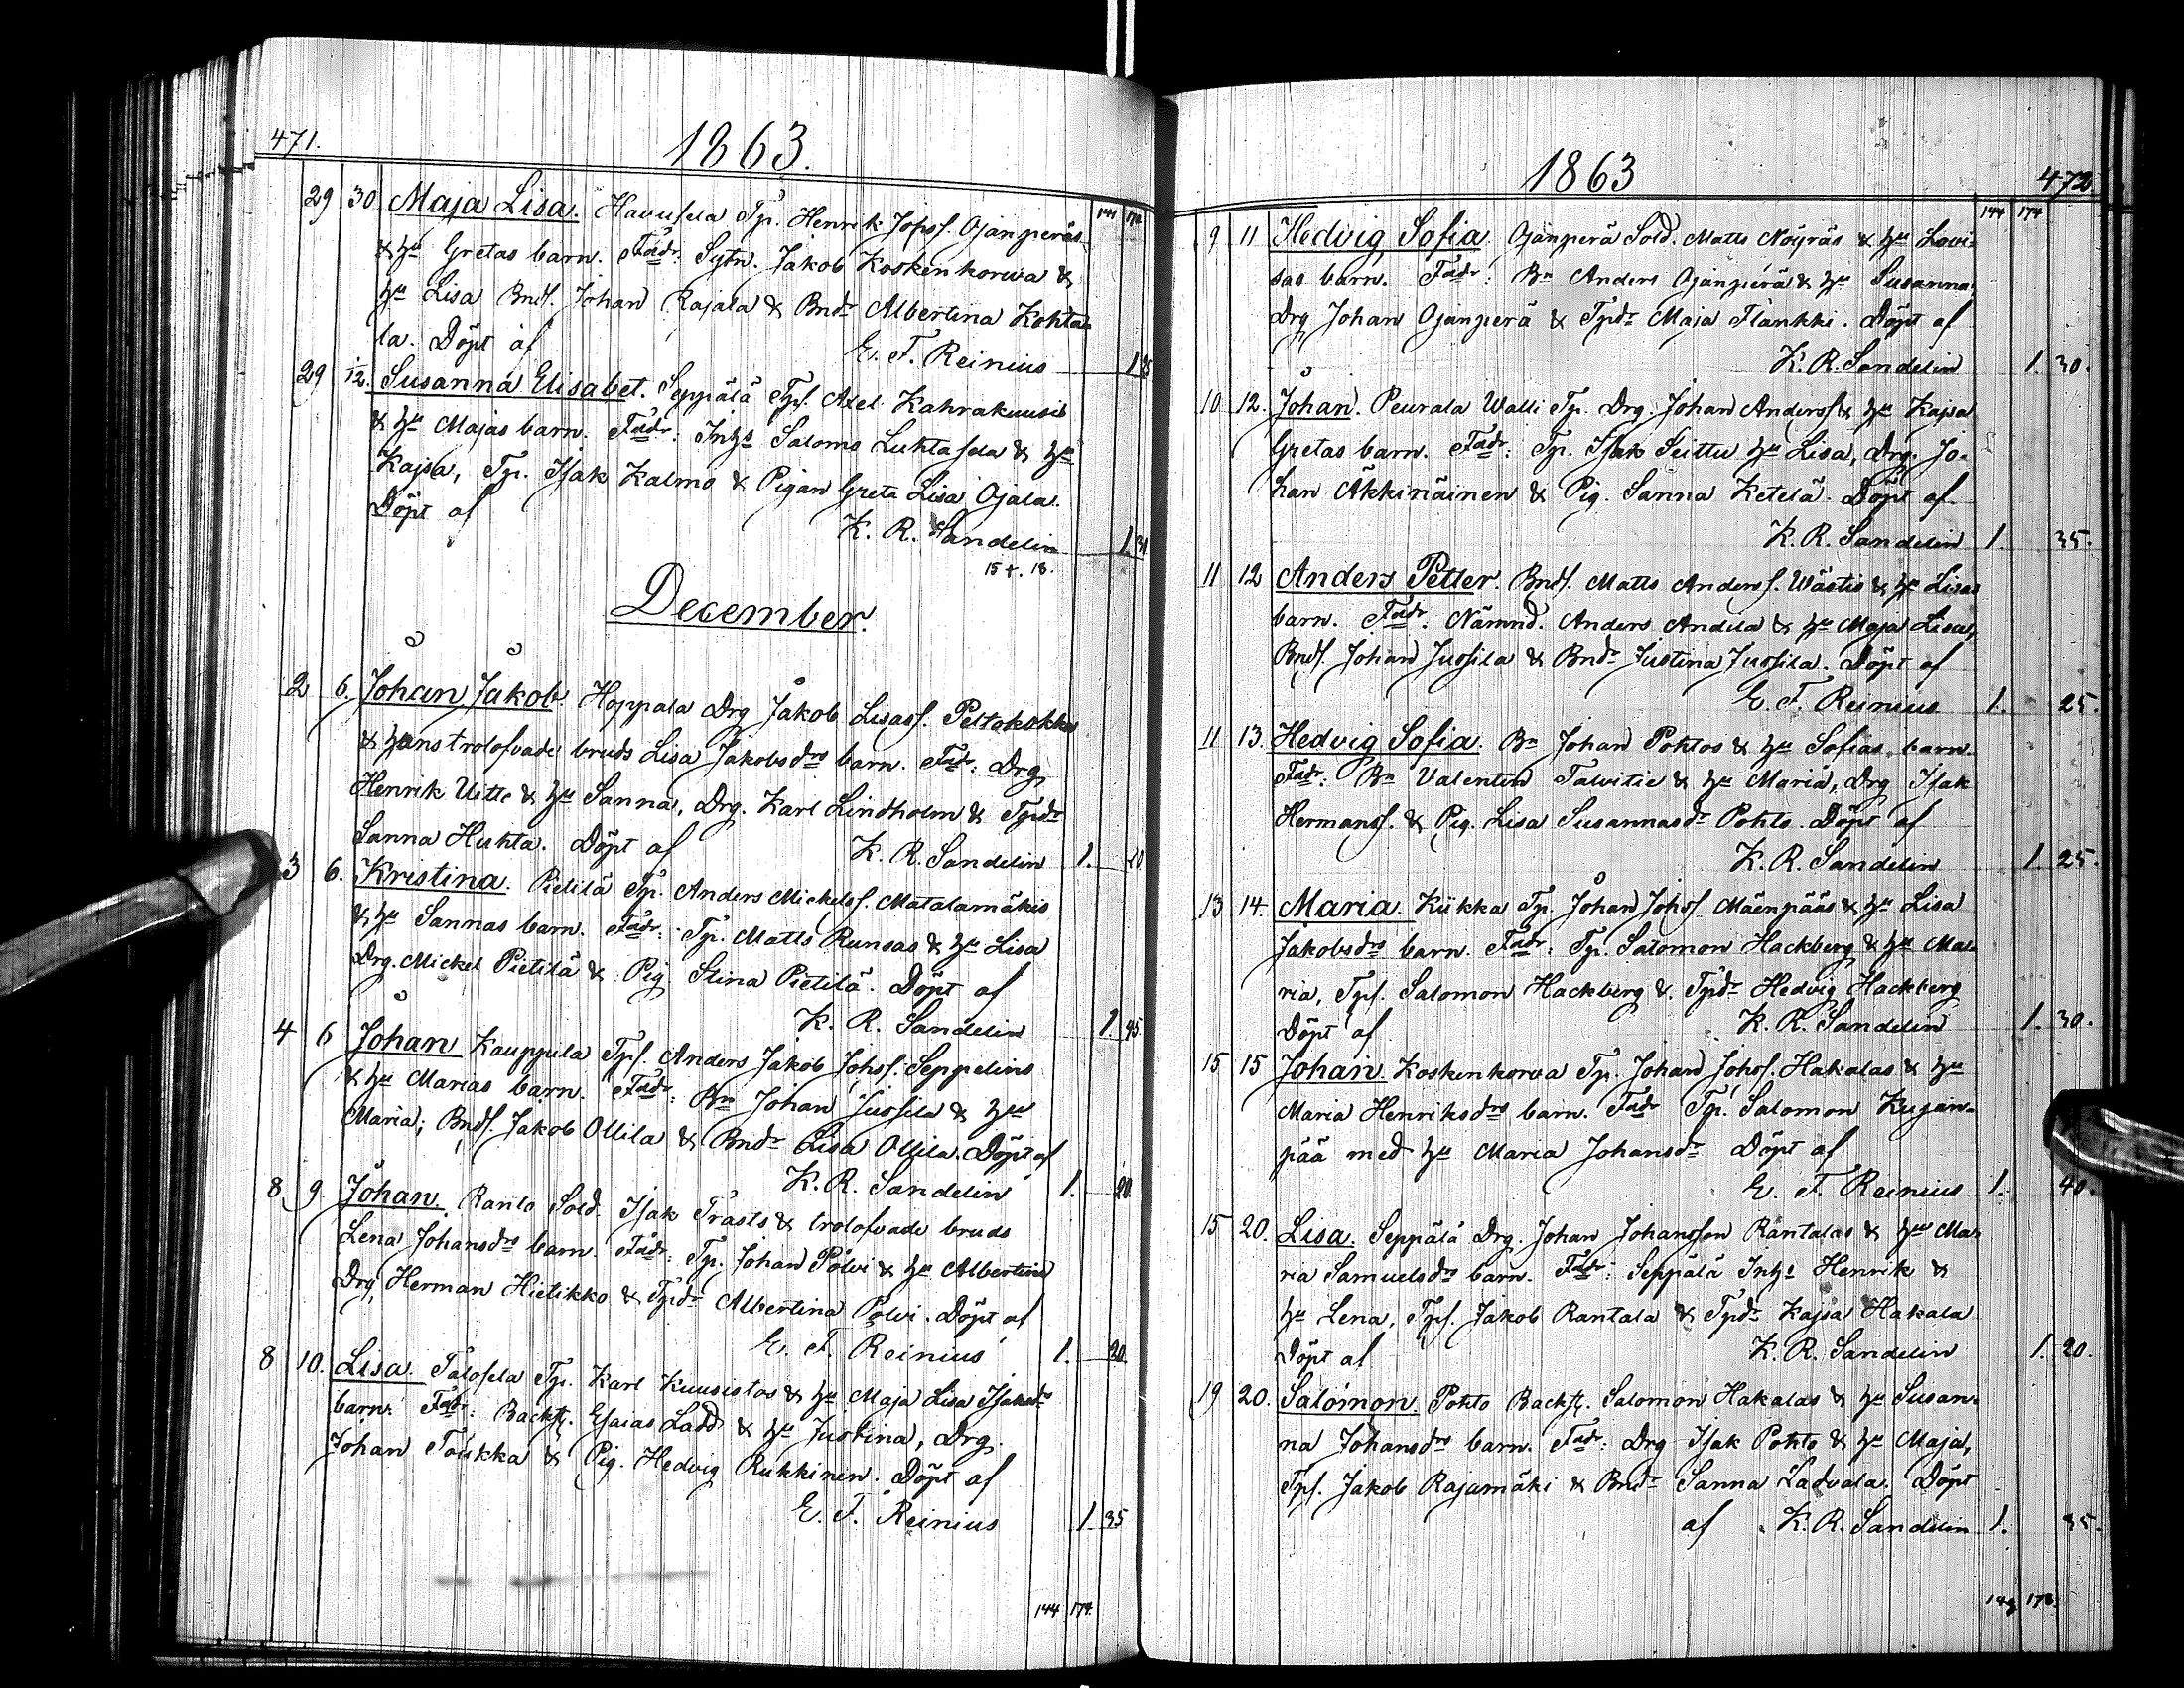 471.
1863.
141 172
29 30 Maja Lisa. Havusela Tp. Henrik Johsf. Ojanperäs
& hu Gretas barn. Fadr: Sytn. Jakob Koskenkorwa &
hu Lisa Bndf. Johan Rajala & Bndr Albertina Kohta-
la. Döpt af
E. F. Reinius 1 25
29 12. Susanna Elisabet. Seppälä Tpf. Axel Kahrakuusis
& hu Majas barn. Fadr: Inhs Salomo Luhtasela & hu
Kajsa, Tp. Isak Kalmo & Pigan Greta Lisa Ojala.
Döpt af
K. R. Sandelin 1. 31
15 + 18.
December.
2 6. Johan Jakob. Hoppala Drg Jakob Lisasf. Peltokokko
& hans trolofvade bruds Lisa Jakobsdrs barn. Fadr: Drg
Henrik Uitto & hu Sanna, Drg. Karl Lindholm & Tpdr
Sanna Huhta. Döpt af
K. R. Sandelin 1. 20
3 6. Kristina. Pietilä Tp. Anders Mickelsf. Matalamäkis
& hu Sannas barn. Fadr: Tp. Matts Runsas & hu Lisa
Drg. Mickel Pietilä & Pig. Stina Pietilä. Döpt af
K. R. Sandelin 1. 45.
4 6 Johan Kauppila Tpf. Anders Jakob Johsf. Seppelins
& hu Marias barn. Fadr: Bn Johan Jussila & hu
Maria; Bndf. Jakob Ollila & Bndr Lisa Ollila. Döpt af
K. R. Sandelin 1. 20.
8 9. Johan. Ranto Sold. Isak Trasts & trolofvade bruds
Lena Johansdrs barn. Fadr: Tp. Johan Polvi & hu Albertina
Drg. Herman Hietikko & Tpdr Albertina Polvi. Döpt af
E. F. Reinius 1. 20.
8 10. Lisa. Talosela Tp. Karl Kuusistos & hu Maja Lisa Isaksdrs
barn. Fadr: Backst. Esaias Ladd & hu Justina, Drg.
Johan Toukka & Pig. Hedvig Rukkinen. Döpt af
E. F. Reinius 1. 35
144 174.
1863
472
144 174
9 11 Hedvig Sofia. Ojanperä Sold. Matts Nöyräs & hu Lovi-
sas barn. Fadr: Bn Anders Ojanperä & hu Susanna
Drg Johan Ojanperä & Tpdr Maja Flankki. Döpt af
K. R. Sandelin 1. 30.
10 12. Johan. Peurala Walli Tp. Drg. Johan Andersf. & hu Kajsa
Gretas barn. Fadr: Tp. Isak Seittu hu Lisa, Drg. Jo-
han Äkkinäinen & Pig. Sanna Ketelä. Döpt af
K. R. Sandelin 1. 35.
11 12 Anders Petter. Bndf. Matts Andersf. Wästis & hu Lisas
barn. Fadr. Nämnd. Anders Andila & hu Maja Lisa,
Bndf. Johan Jussila & Bndr Justina Jussila. Döpt af
E. F. Reinius 1. 25.
11 13. Hedvig Sofia. Bn Johan Pohtos & hu Sofias barn.
Fadr: Bn Valentin Talvitie & hu Maria, Drg Isak
Hermansf. & Pig. Lisa Susannasdr Pohto. Döpt af
K. R. Sandelin 1. 25.
13 14. Maria. Kiikka Tp. Johan Johsf. Mäenpääs & hu Lisa
Jakobsdrs barn. Fadr: Tp. Salomon Hackberg & hu Ma-
ria, Tpf. Salomon Hackberg & Tpdr Hedvig Hackberg
Döpt af K. R. Sandelin 1. 30.
15 15 Johan. Koskenkorva Tp. Johan Johsf. Hakalas & hu
Maria Henriksdrs barn. Fadr Tp. Salomon Kujan-
pää med hu Maria Johansdr Döpt af
E. F. Reinius 1. 40.
15 20. Lisa. Seppälä Drg. Johan Johansson Rantalas & hu Ma-
ria Samuelsdrs barn. Fadr: Seppälä Inhs Henrik &
hu Lena, Tpf. Jakob Rantala & Tpdr Kajsa Hakala
Döpt af K. R. Sandelin 1. 20.
19 20. Salomon. Pohto Backst. Salomon Hakalas & hu Susan-
na Johansdrs barn. Fadr: Drg Isak Pohto & hu Maja,
Tpf. Jakob Rajamäki & Bndr Sanna Ladvala. Döpt
af K. R. Sandelin 1. 35.
149 178.